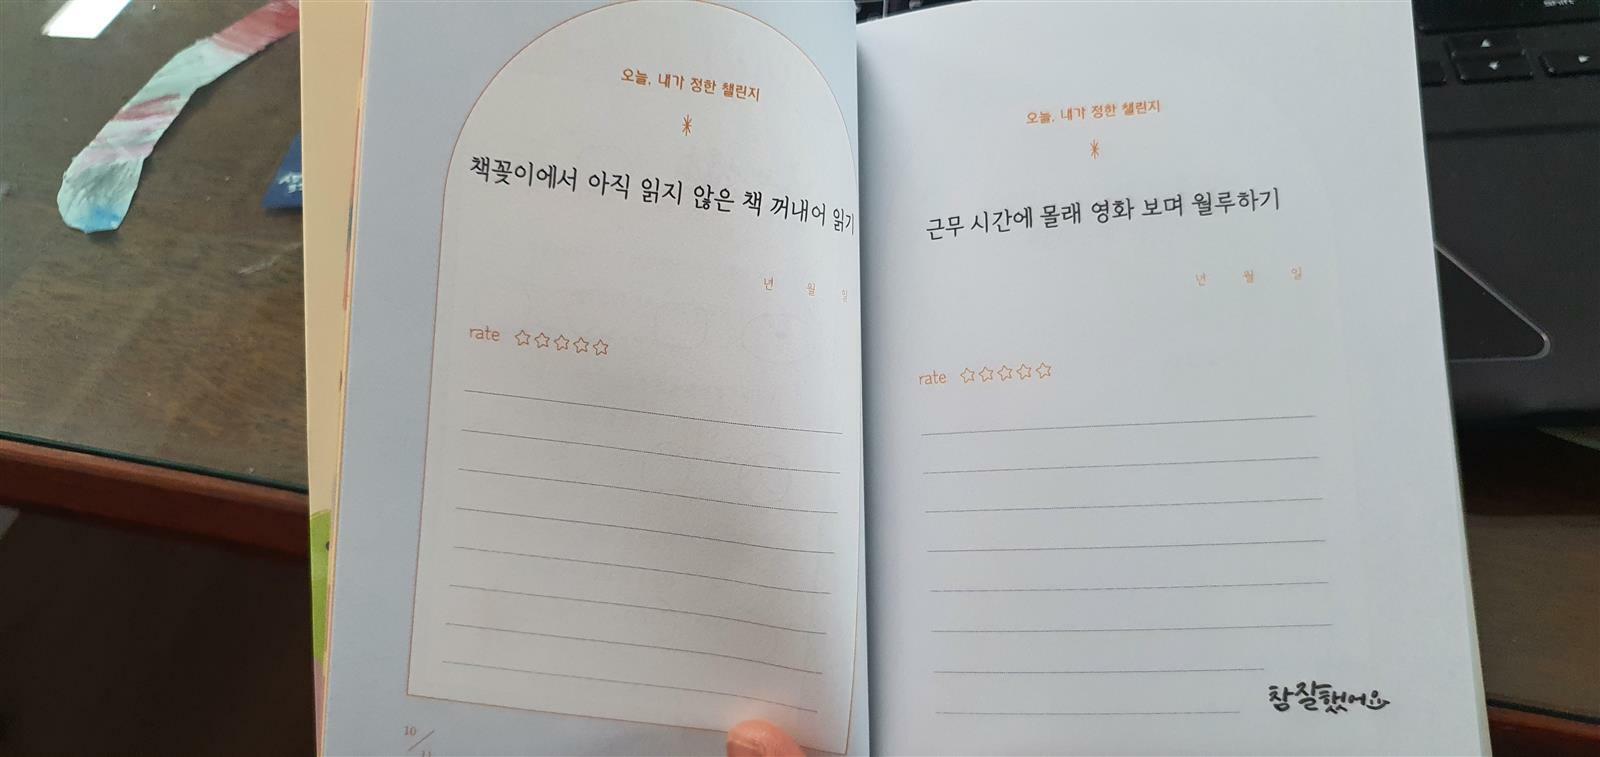 오늘, 내가 정한 챌린지
책꽂이에서 아직 읽지 않은 책 꺼내어 읽기
년 월 일
rate
10
11
오늘, 내가 정한 챌린지
근무 시간에 몰래 영화 보며 월루하기
년 월 일
rate
참 잘했어요